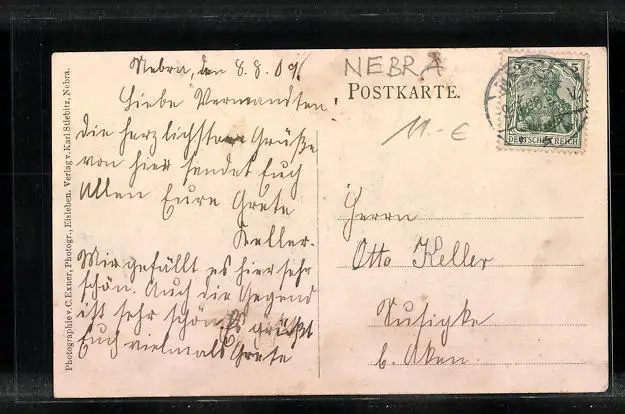 Photographie v. C. Exner, Photogr., Eisleben. Verlag v. Karl Stiebitz, Nebra.
Nebra, den 8.8.09.
Liebe Verwandten!
die herzlichsten Grüße
von hier sendet Euch
Allen Eure Grete
Keller.
Mir gefällt es hier sehr
schön. Auch die Gegend
ist sehr schön. Es grüßt
Euch vielmals Grete
NEBRA
POSTKARTE.
11.- €
5 5
DEUTSCHES REICH
Herrn
Otto Keller
Susigke
b. Aken.